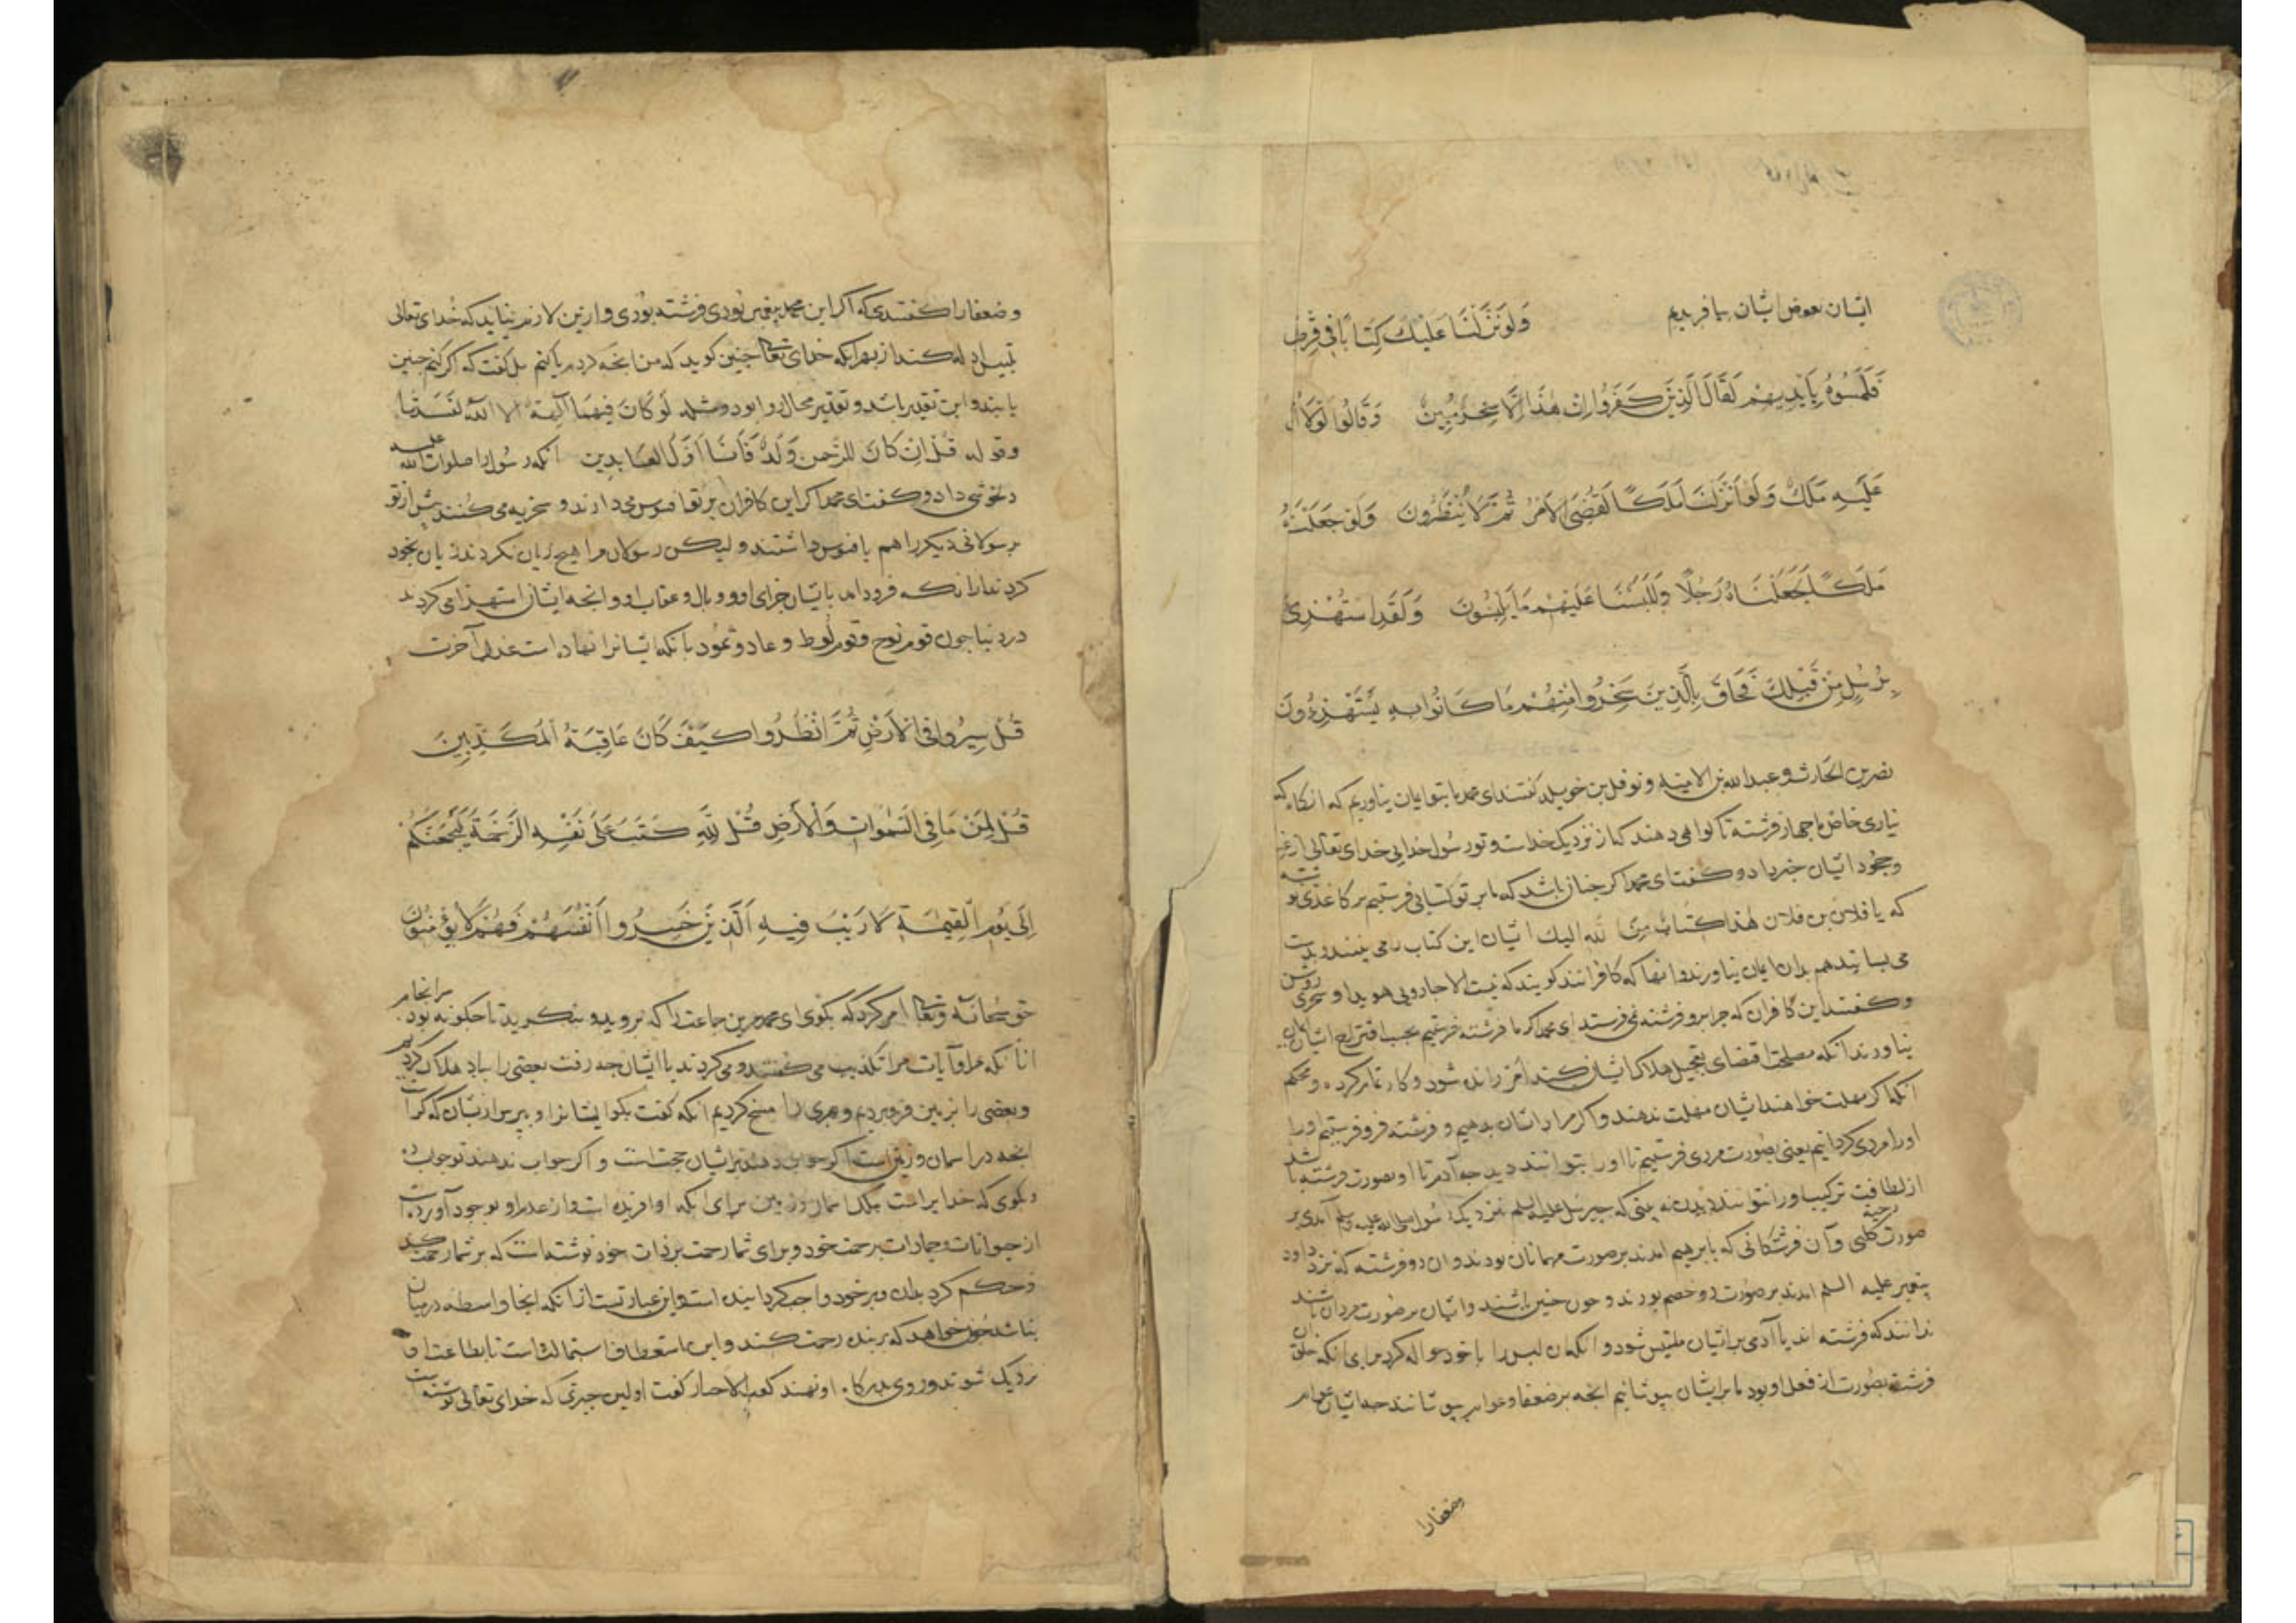 ایشان بعوض ایشان بیافریدیم وَلَوْ نَزَّلْنَا عَلَيْكَ كِتَابًا فِي قِرْطَ
فَلَمَسُوهُ بِأَيْدِيهِمْ لَقَالَ الَّذِينَ كَفَرُوا إِنْ هَذَا إِلَّا سِحْرٌ مُبِينٌ وَقَالُوا لَوْلَا أُ
عَلَيْهِ مَلَكٌ وَلَوْ أَنْزَلْنَا مَلَكًا لَقُضِيَ الْأَمْرُ ثُمَّ لَا يُنْظَرُونَ وَلَوْ جَعَلْنَاهُ
مَلَكًا لَجَعَلْنَاهُ رَجُلًا وَلَلَبَسْنَا عَلَيْهِمْ مَا يَلْبِسُونَ وَلَقَدِ اسْتُهْزِئَ
بِرُسُلٍ مِنْ قَبْلِكَ فَحَاقَ بِالَّذِينَ سَخِرُوا مِنْهُمْ مَا كَانُوا بِهِ يَسْتَهْزِءُونَ
نضر بن الحارث و عبدالله بن الامیه و نوفل بن خویلد گفتند ای محمد ما بتو ایمان نیاوریم که انکاه که
نیاری خاص با چهار فرشته تا گواهی دهند که از نزدیک خداست و تو رسول خدایی خدای تعالی از
وجحود ایشان خبر داد و گفت ای محمد اکر چنان باشد که ما بر تو کتابی فرستیم بر کاغذی نو شته
که یا فلان بن فلان هذا کتاب من الله الیک ایشان این کتاب را می بینند و بدست
می بساند هم بدان ایمان نیاورند و انها که کافرانند کویند که نیست الا جادویی هویدا و سحری روشن
و کفتند این کافران که چرا برو فرشته نمی فرستد ای محمد اکر ما فرشته فرستیم بحسب اقتراح ایشان
نیاورند انکه مصلحت اقتضای تعجیل هلاک ایشان کند امر رانده شود و کار تمام کرده و محکم
انکه اکر مهلت خواهند ایشان مهلت ندهند و اکر مراد ایشان بدهیم و فرشته فرو فرستیم و را
او را مردی کردانیم یعنی بصورت مردی فرستیم تا او را بتوانند دید چه آدم تا او بصورت فرشته باشد
از لطافت ترکیب او را نتوانند دیدن نه بینی که جبرئیل علیه السلم نزدیک رسول صلی الله علیه وسلم آمدی بر
صورت دحیه کلبی و آن فرشتکانی که بابرهیم امدند بر صورت مهمانان بودند و ان دو فرشته که نزد داود
پیغمبر علیه السلم امدند بر صورت دو خصم بودند و چون چنین باشند و ایشان بر صورت مردان باشند
ندانند که فرشته اند یا آدمی بر ایشان ملتبس شود و انکه ان لبس را با خود حواله کرد برای انکه خلق
فرشته بصورت از فعل او بود ما بر ایشان بپوشانیم انچه بر ضعفا و عوام بپوشانند چه ایشان عوام
وضعفا را
وضعفا را کفتندی که اکر این محمد پیغمبر بودی فرشته بودی و ازین لازم نیاید که خدای تعالی
تلبیس ادله کند از بهر انکه خدای تعالی چنین کوید که من انچه کردم یا کنم بل گفت که اکر کنم چنین
یابند و این تقدیر باشد و تقدیر محال روا بود و مثله لَوْ كَانَ فِيهِمَا آلِهَةٌ إِلَّا اللَّهُ لَفَسَدَتَا
و قوله قُلْ إِنْ كَانَ لِلرَّحْمَنِ وَلَدٌ فَأَنَا أَوَّلُ الْعَابِدِينَ انکه رسول را صلوات الله علیه
دلخوشی داد و گفت ای محمد اکر این کافران بر تو افسوس می دارند و سخریه می کنند پیش از تو
برسولانی دیکر را هم بافسوس داشتند ولیکن رسولان مرا هیچ زیان نکردند زیان بخود
کردند از انکه فرود امد بایشان جزای او و وبال و عقاب او و انچه ایشان استهزا می کردند
در دنیا چون قوم نوح و قوم لوط و عاد و ثمود با نکه ایشانرا نهاده است عذاب آخرت
قُلْ سِيرُوا فِي الْأَرْضِ ثُمَّ انْظُرُوا كَيْفَ كَانَ عَاقِبَةُ الْمُكَذِّبِينَ
قُلْ لِمَنْ مَا فِي السَّمَوَاتِ وَالْأَرْضِ قُلْ لِلَّهِ كَتَبَ عَلَى نَفْسِهِ الرَّحْمَةَ لَيَجْمَعَنَّكُمْ
إِلَى يَوْمِ الْقِيَمَةِ لَا رَيْبَ فِيهِ الَّذِينَ خَسِرُوا أَنْفُسَهُمْ فَهُمْ لَا يُؤْمِنُونَ
حق سبحانه و تعالی امر کرد که بکوی ای محمد مرین جماعت را که بروید و بنکرید تا چکونه بود سرانجام
انانکه مرا و آیات مرا تکذیب می کفتند و می کردند با ایشان چه رفت بعضی را بباد هلاک کردیم
و بعضی را بزمین فرو بردیم و بهری را مسخ کردیم انکه کفت بکو ایشانرا و بپرس ازیشان که کراست
انچه در اسمان و زمین است اکر جواب دهند بر ایشان حجت است و اکر جواب ندهند تو جواب ده
و بکوی که خدا یراست ملک اسمان و زمین برای انکه او افریده است و از عدم او بوجود آورده است
از حیوانات و جمادات برحمت خود و برای شما رحمت بر ذات خود نوشته است که بر شما رحمت کند
و حکم کرد بدان و بر خود واجب کردانیده است و این عبارتیست از انکه انجا واسطه درمیان
نباشد چون خواهد که بر بنده رحمت کند و این استعطاف و استمالت است تا بطاعت او
نزدیک شوند و روی بدرکاه او نهند کعب الاحبار کفت اولین چیزی که خدای تعالی نوشته است